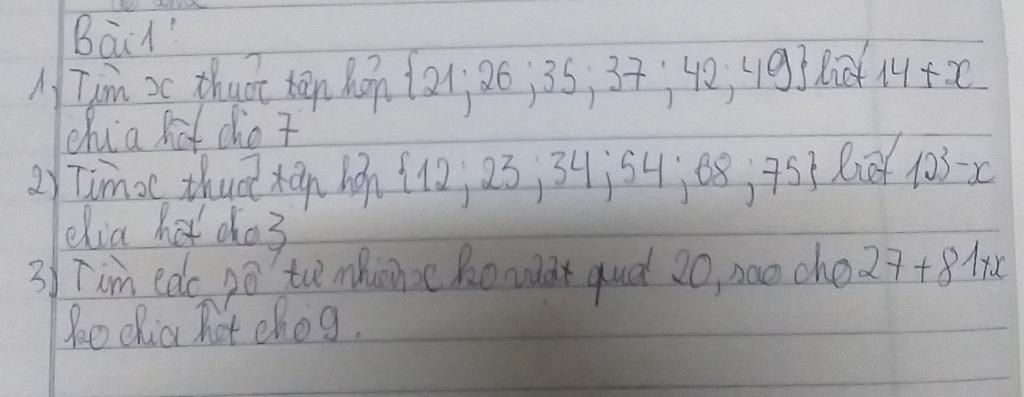 Bài 1:
1) Tìm x thuộc tập hợp {21; 26; 35; 37; 42; 49} biết 14 + x
chia hết cho 7
2) Tìm x thuộc tập hợp {12; 23; 34; 54; 68; 75} biết 123 - x
chia hết cho 3
3) Tìm các số tự nhiên x ko vượt quá 20, sao cho 27 + 81 + x
ko chia hết cho 9.